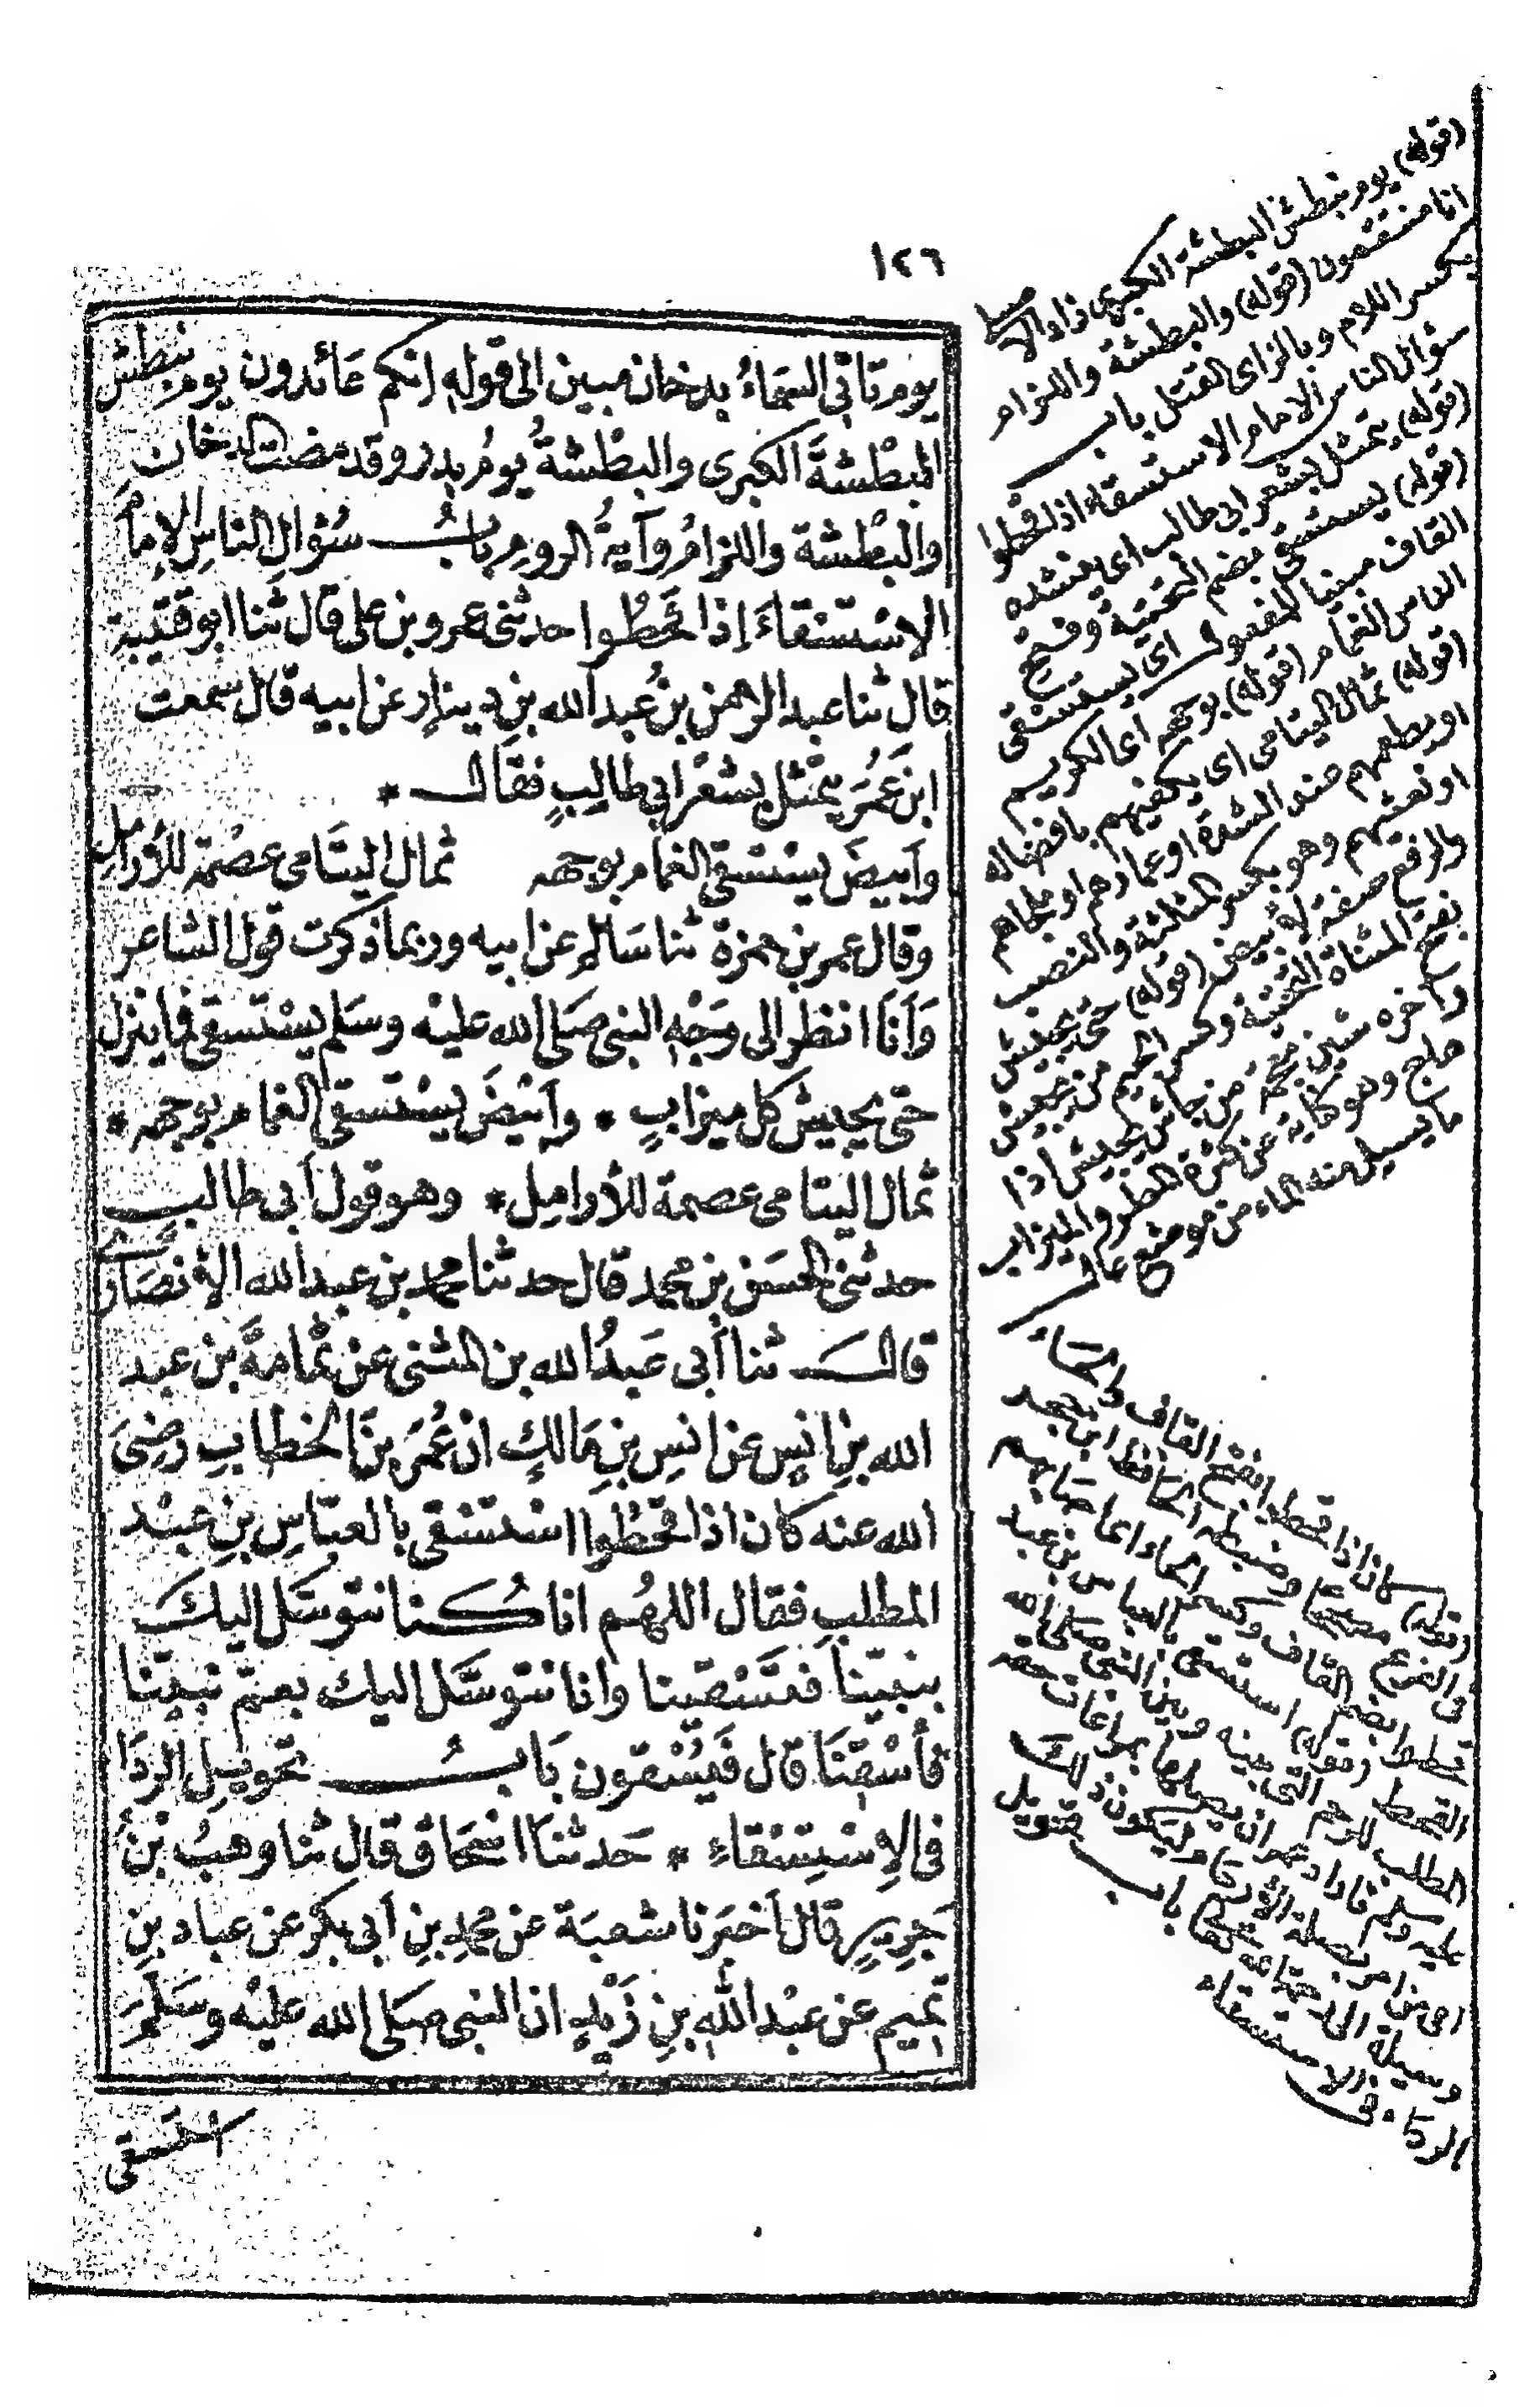 ١٤٦
يوم تاتى السَّمَاءُ بدخان مبين الى قوله انكم عَائدون يوم نبطش
البطْشةَ الكبرى والبطْشةُ يومُ بدر وقد مضت الدخان
والبطْشة واللزامُ وآيةُ الروم بابُ سُؤالِ الناسِ الإمامَ
الاسْتسْقاءَ إذا قحَطُوا حدثنى عمرو بن على قال ثنا ابو قتيبة
قال ثنا عبد الرحمن بنُ عبد الله بنِ دينارٍ عن ابيه قال سمعت
ابن عُمَرَ يتمثل بشعْر ابى طالبٍ فقال *
وأبيضَ يسْتسْقى الغمام بوجهه ثمال اليتَامى عصْمة للأرامل
وقال عمر بن حمزة ثنا سَالم عن ابيه وربما ذكرت قول الشاعر
وَأَنَا انظر الى وَجْهِ النبى صَلى الله عليْه وسَلم يسْتَسقى فما ينزل
حتى يجيش كل ميزابٍ * وأبيضَ يسْتسقى الغمام بوجهه *
ثمال اليتامى عصمة للأرامِل * وهو قول أبى طالب
حدثنى الحسَن بن محمد قال حدثنا محمد بن عبد الله الأنصَارى
قال ثنا أبى عَبدُ الله بن المثنى عن ثُمامةَ بن عبد
الله بنِ انسٍ عن انسِ بنِ مَالكٍ ان عُمَرَ بنَ الخطابِ رضِىَ
الله عنه كان اذا قحَطُوا اسْتسْقى بالعبّاسِ بنِ عبْد
المطلبِ فقال اللهُم انا كُنا نتوسَّل اليك
بنبيّنا فتَسْقينا وانا نتوسَّل اليك بعمّ نبيّنا
فأسْقِنَا قال فَيُسْقون بَابُ تحويلِ الردَا
فى الاِسْتِسْقاءِ * حَدثنا اسْحَاق قال ثنا وهبُ بْنُ
جَرِيرٍ قال أخبَرنا شعبَة عن محمدِ بنِ أبى بكر عن عباد بنِ
تميم عن عبْد اللهِ بنِ زَيْدٍ ان النبى صَلى الله عليْه وسَلمَ
استسقى
(قوله) يوم نبطش البطشة الكبرى زاد الاصيلى
انا منتقمون (قوله) والبطشة واللزام
بكسر اللام وبالزاى القتل باب
سؤال الناس الامام الاستسقاء اذا قحطوا
(قوله) يتمثل بشعر ابى طالب اى ينشده
(قوله) يستسقى بضم التحتية وفتح
القاف مبنيا للمفعول اى يستسقى
الناس الغمام (قوله) بوجهه اى الكريم
(قوله) ثمال اليتامى اى يكفيهم بافضاله
او يطعمهم عند الشدة او عمادهم او ملجأهم
او نغيثهم وهو بكسر المثلثة والنصب
والرفع صفة لأبيض (قوله) حتى يجيش
بفتح المثناة التحتية وكسر الجيم من يجيش
وآخره شين معجمة من جاش يجيش اذا
هاج وهو كناية عن كثرة المطر والميزاب
ما يسيل منه الماء من موضع عال
(قوله) كان اذا قحطوا بفتح القاف والحاء
فى الفرع مصححا وضبطه الحافظ ابن حجر
قحطوا بضم القاف وكسر الحاء اى اصابهم
القحط (قوله) استسقى بالعباس بن عبد
المطلب للرحم التى بينه وبين النبى صلى الله
عليه وسلم فاراد عمر ان يصلها بمراعاة حقه
الى من امر بصلة الأرحام ليكون ذلك
وسيلة الى رحمة الله تعالى باب تحويل
الرداء فى الاستسقاء